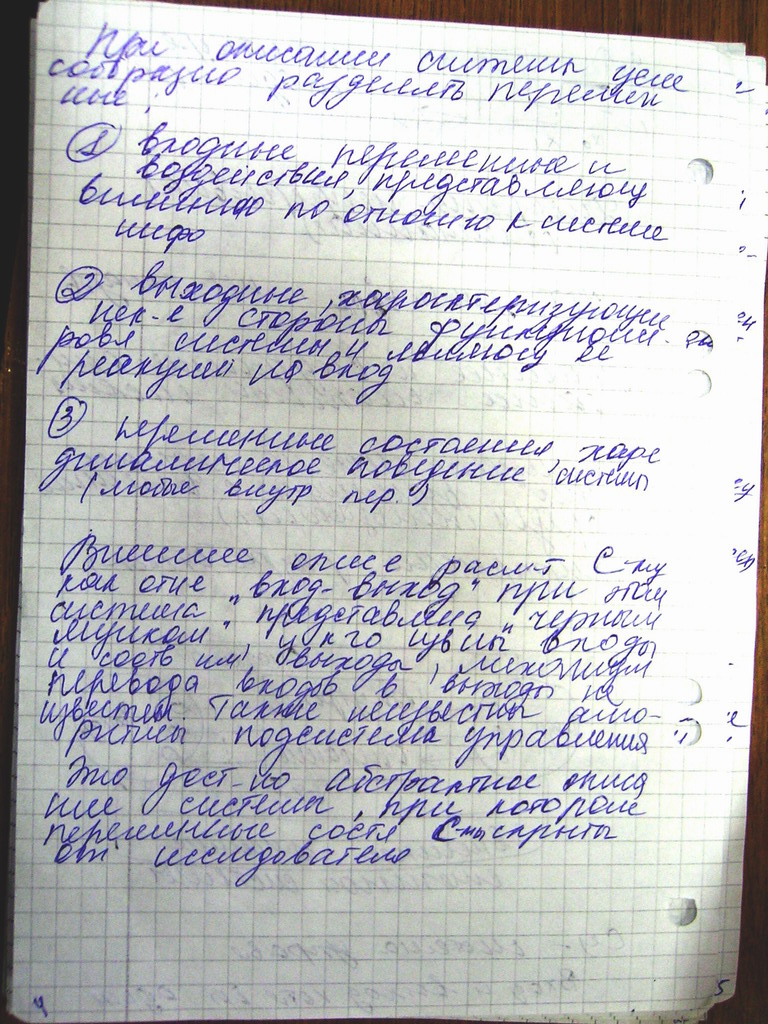 При описании системы целе
сообразно разделять перемен
ные:
① входные переменные и
воздействия, представляющ
внешнюю по отношю к системе
инфо
② выходные, характеризующие
нек-е стороны функциони-
ров систем и
реакции на вход
③ переменные состояния, хар
динамическое поведение системы
(любые внутр пер.)
Внешнее опис расм-т С-му
как отне "вход-выход" при этом
система представлена "черным
ящиком" у к-го извны входы
и соотв им выходы, механизм
перевода входов в выходы не
известен. Также неизвестны алго-
ритмы подсистемы управления
Это дост-но абстрактное описа
ние системы, при котором
переменные состя С-мы скрыты
от исследователя
4
5